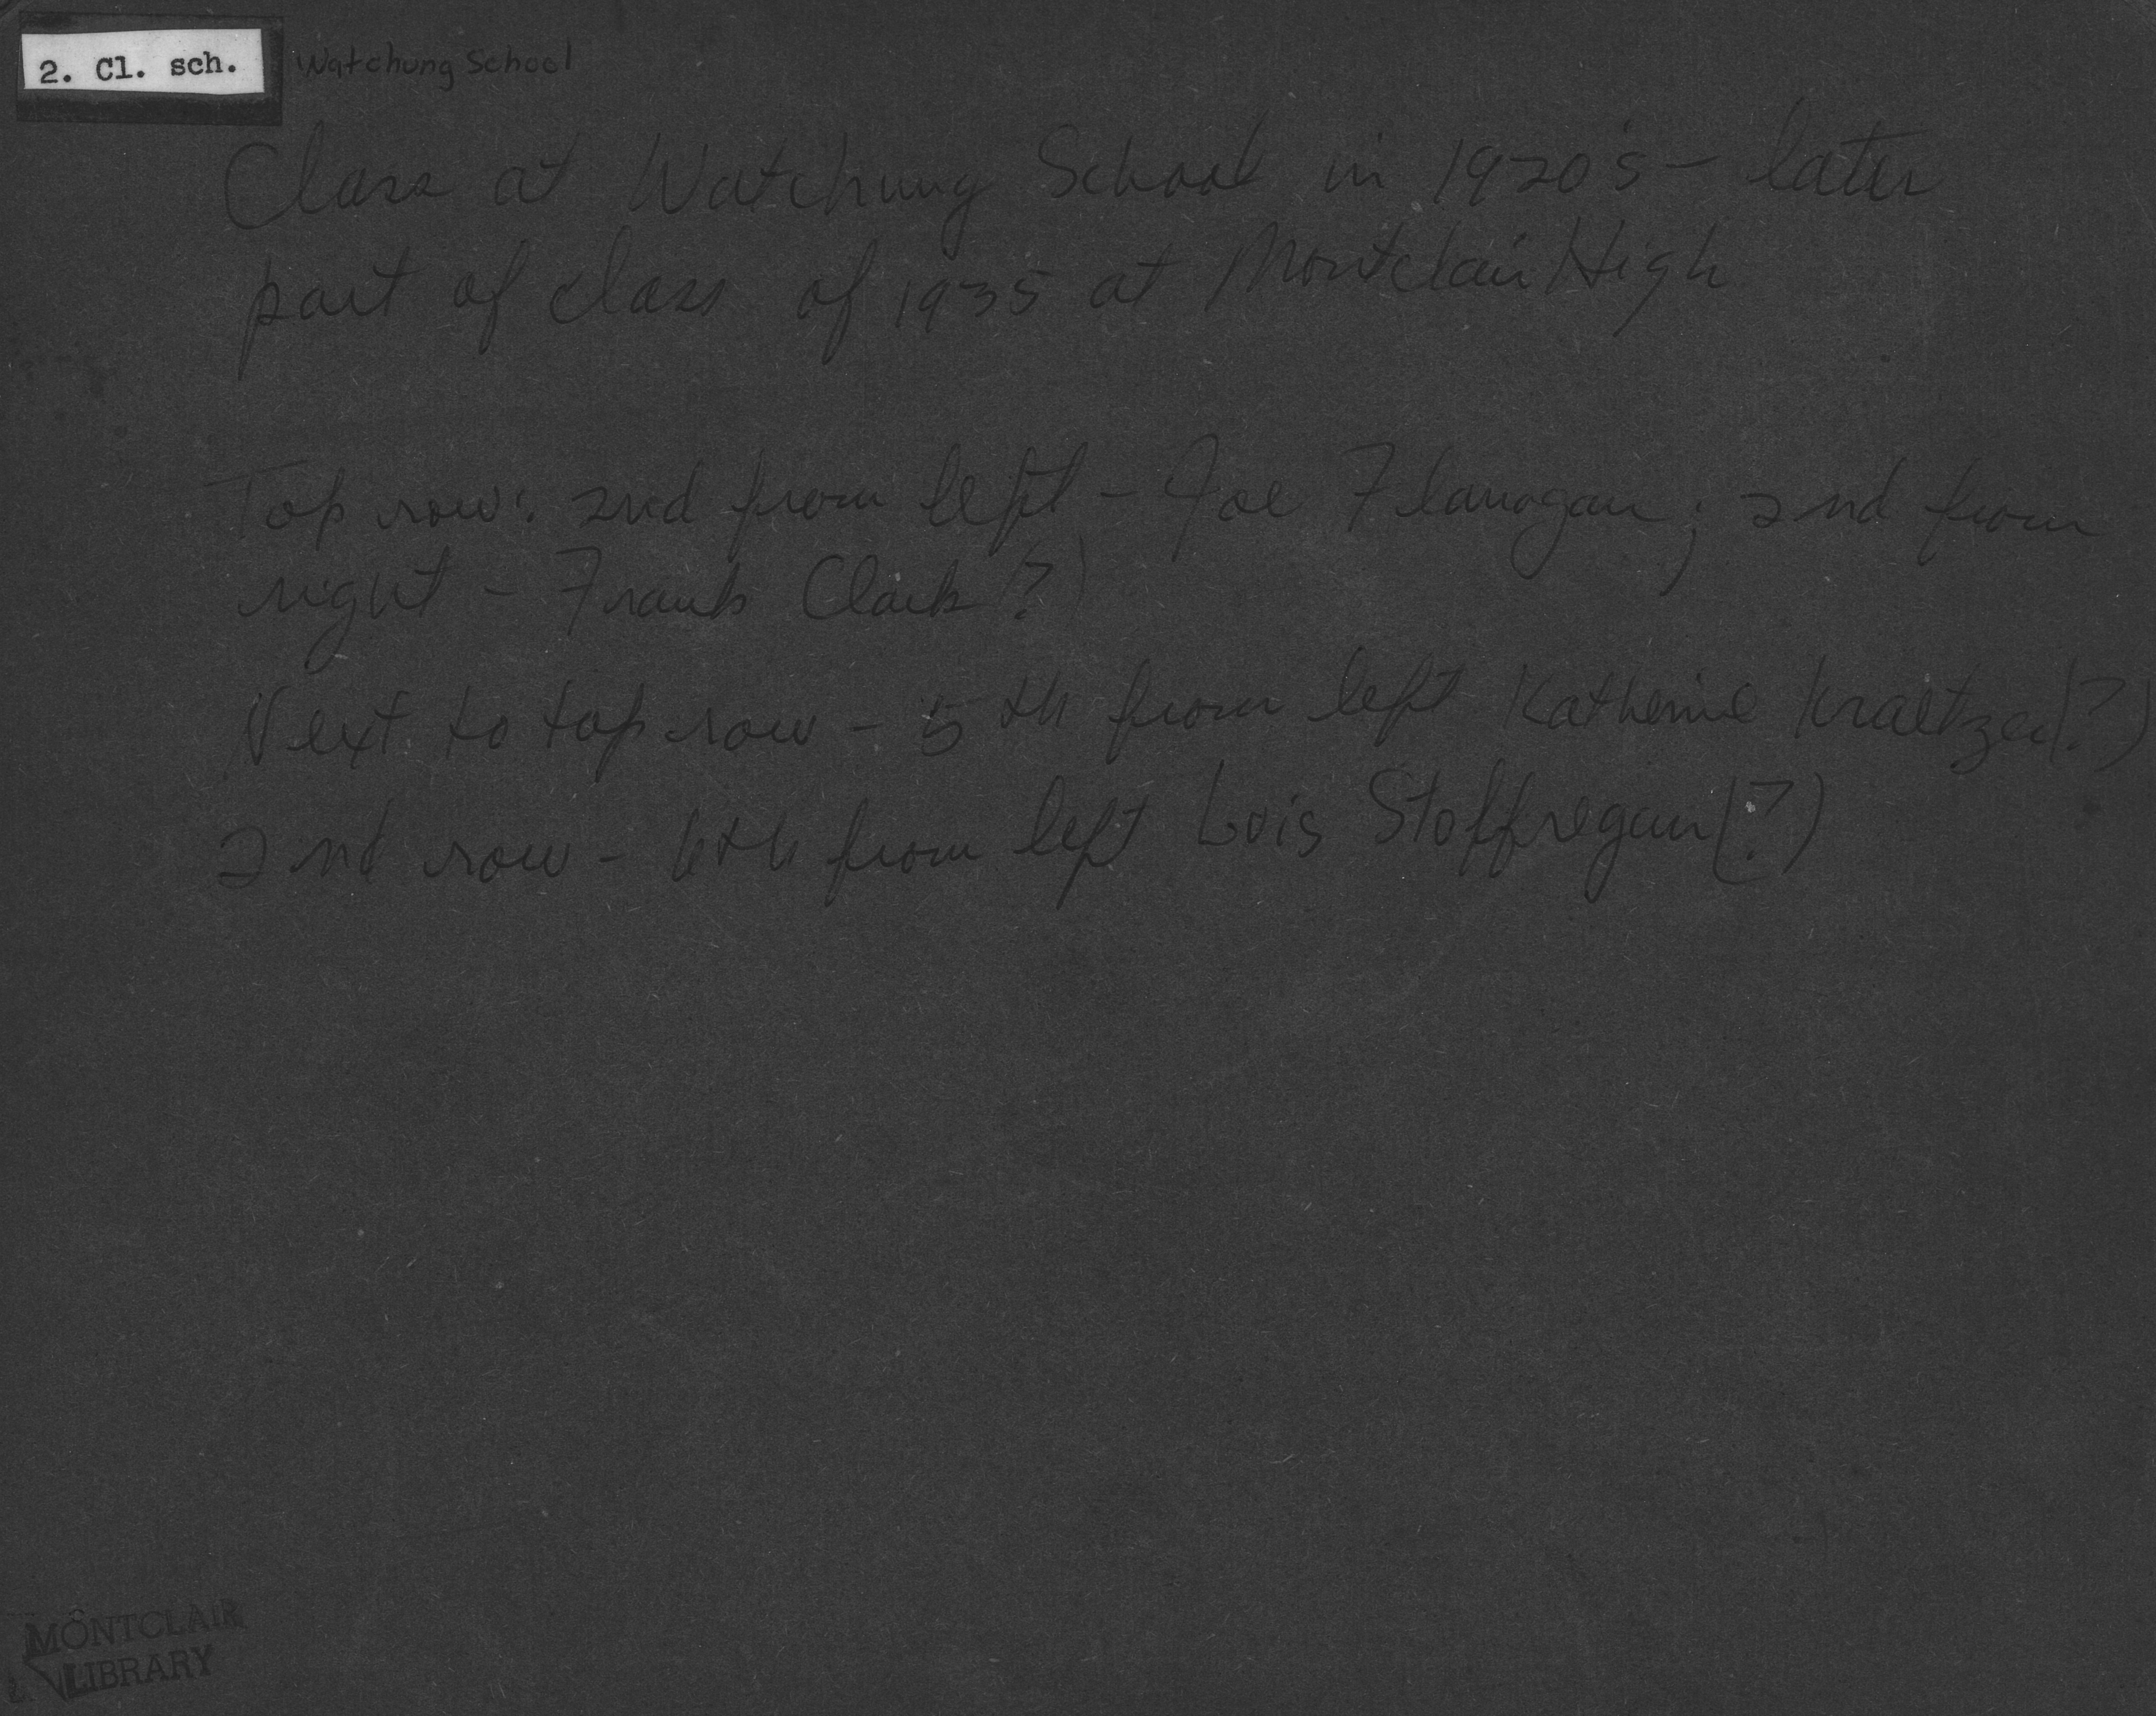 2. Cl. sch.
Watchung School
Class at Watchung School in 1920's – later
part of class of 1935 at Montclair High
Top row: 2nd from left – Joe Flanagan; 2nd from
right – Frank Clark (?)
Next to top row – 5th from left Katherine Kraetzer (?)
2nd row – 6th from left Lois Stoffregan (?)
MONTCLAIR
LIBRARY